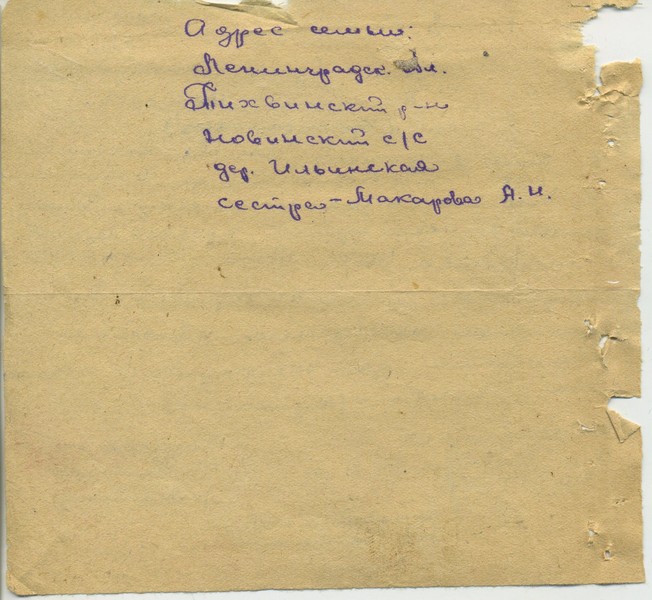 Адрес семьи:
Ленинградск. обл.
Тихвинский р-н
Новинский с/с
дер. Ильинская
сестра - Макарова А. И.